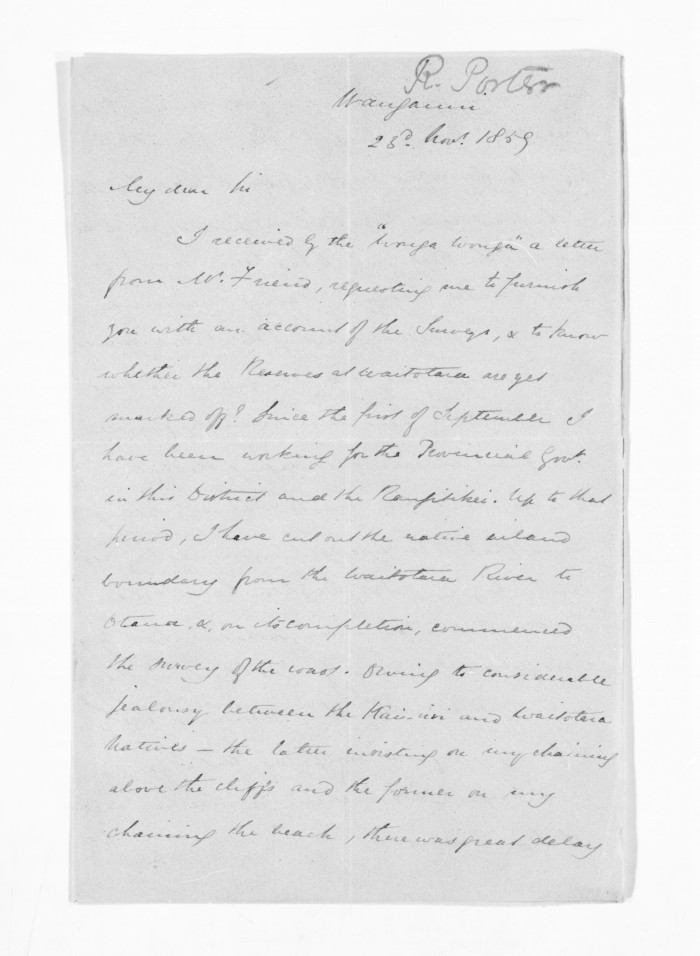 R. Porter
Wanganui
23d. Novr. 1859
My dear Sir
I received by the "Wonga Wonga" a letter
from Mr. Friend, requesting me to furnish
you with an account of the Surveys, & to know
whether the Reserves at Waitotara are yet
marked off? Since the first of September I
have been working for the Provincial Govt.
in this District and the Rangitikei. Up to that
period, I have cut out the native inland
boundary from the Waitotara River to
&, on its completion, commenced
the survey of the coast. Owing to considerable
jealousy between the and Waitotara
Natives — the latter insisting on my chaining
above the cliffs and the former on my
chaining the beach, there was great delay